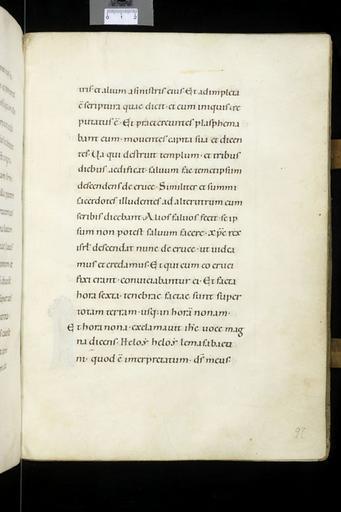 tris et alium a sinistris eius. Et adimpleta
ē scriptura quae dicit. et cum iniquis re
putatus ē. Et praetereuntes plasphema
bant eum. moventes capita sua et dicen
tes. Va qui destruit templum. et tribus
diebus aedificat. salvum fac temetipsum
descendens de cruce. Similiter et summi
sacerdotes illudentes ad alterutrum cum
scribis dicebant. Alios salvos fecit. se ip
sum non potest salvum facere. xp̄c rex
isrl̄ descendat nunc de cruce. ut videa
mus et credamus. Et qui cum eo cruci
fixi erant. conviciabantur ei. Et facta
hora sexta. tenebrae factae sunt super
totam terram. usq; in horā nonam.
Et hora nona. exclamavit ih̄c voce mag
na dicens. Heloy heloy lema sabacta
ni. quod ē interpretatum. ds̄ meus.